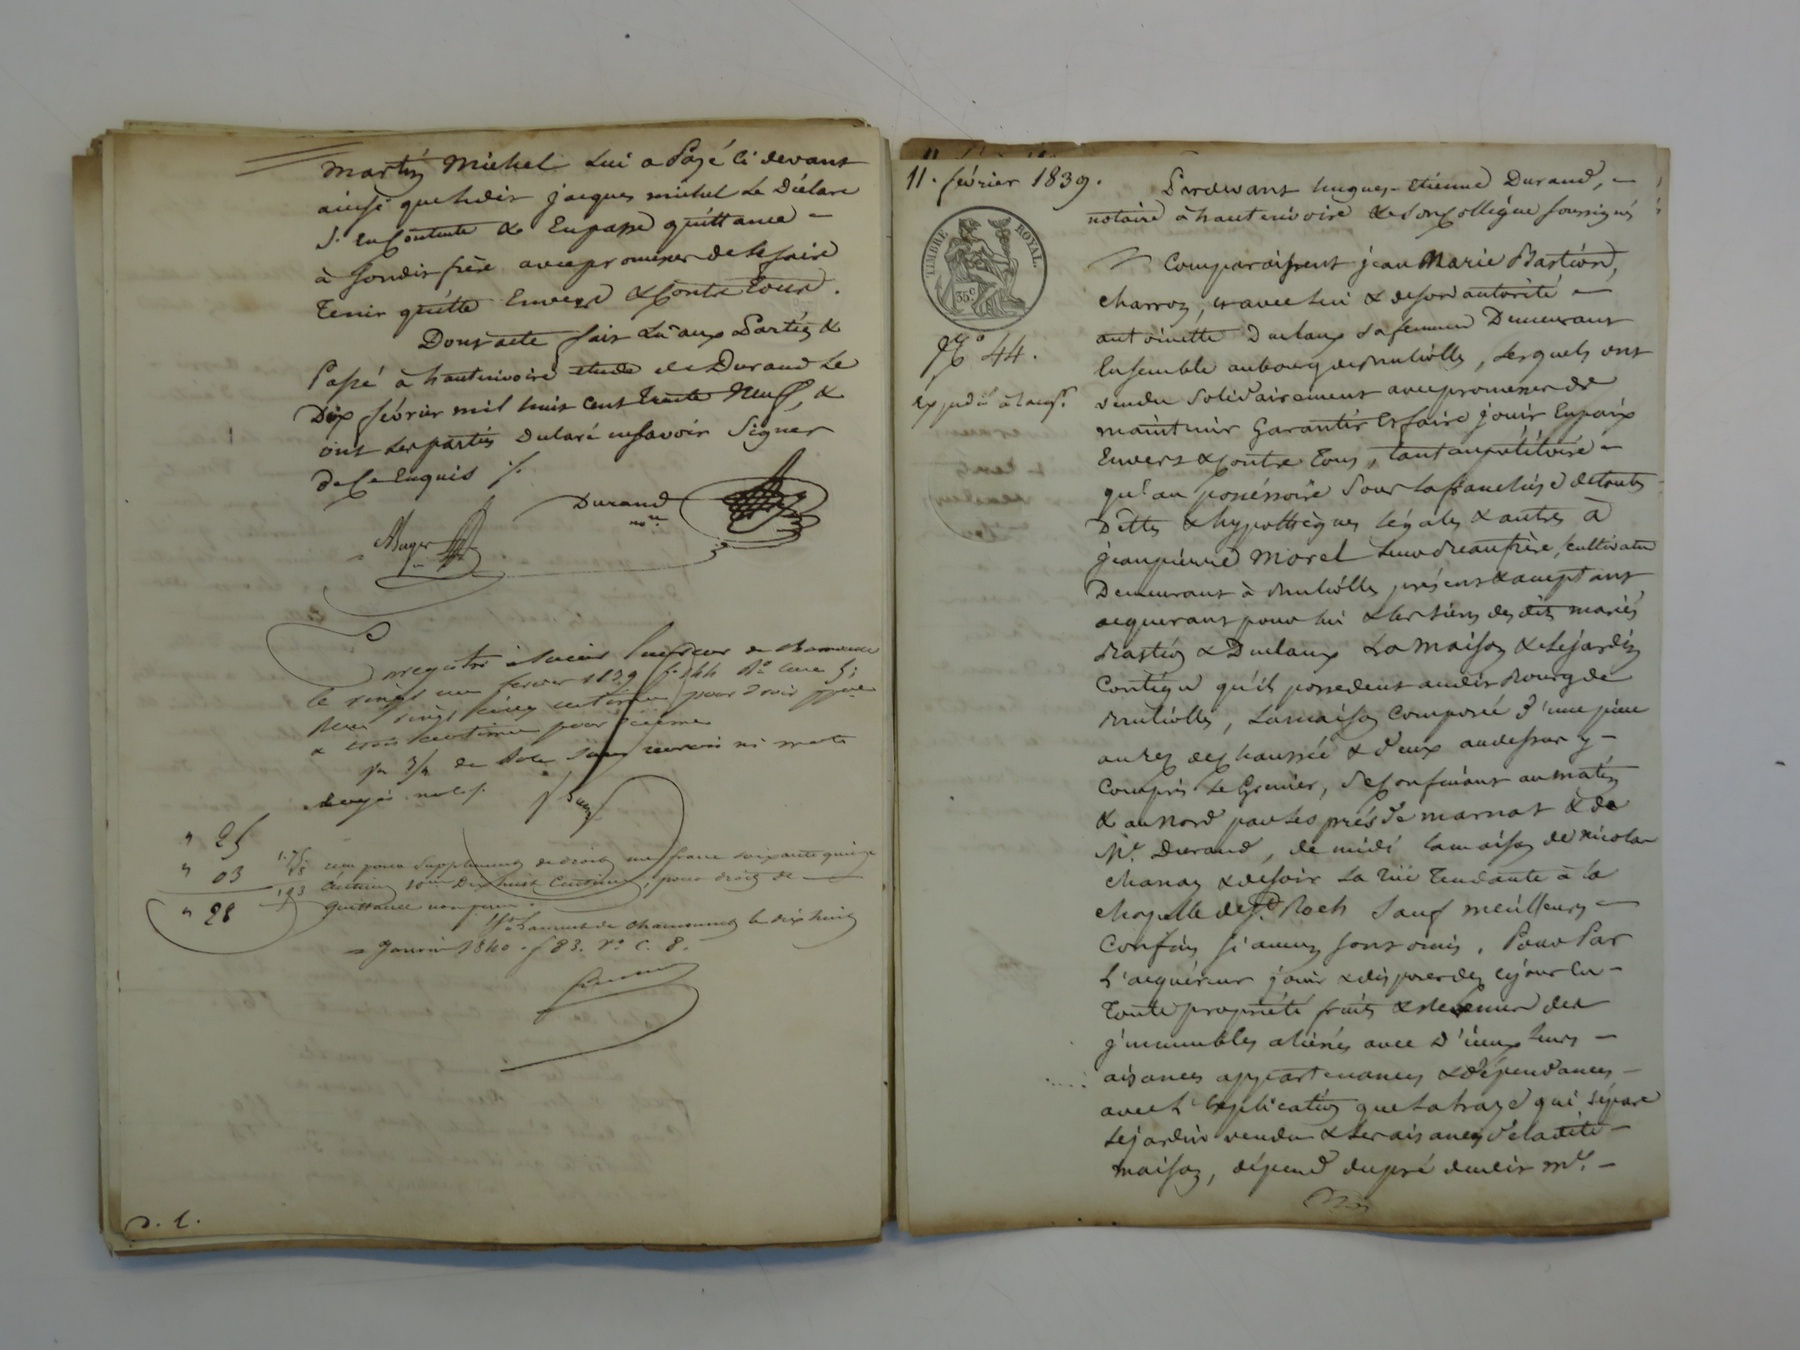 Martin Michel lui a payé ci devant
ainsi que ledit jacques michel le déclare
s'en Contente & En passe quittance –
à Sondit frère avec promesse de le faire
Tenir quitte Envers & Contre Tous.
Dont acte fait Lu aux Parties &
Passé à hauterivoire étude de Durand Le
Dix février mil huit cent Trente Neuf, &
ont Les parties Déclaré ne savoir Signer
de Ce Enquis ./.
Durand
nore
Enregistré à Saint Laurent de Chamousset
le vingt un fevrier 1839 fo 144 Ro Case 5;
Reçu vingt cinq centimes pour droit
& trois centimes pour décime
de vote sans renvoi ni mots
rayés nuls.
" 25
" 03
" 28
1.75
18
1.93
reçu pour Supplement de droits un franc soixante quinze
Centimes 10me Dix huit Centimes, pour droit de
quittance non perçu.
St Laurent de Chamousset le dix huit
Janvier 1840. f 83. Vo C. 8.
11. février 1839.
TIMBRE ROYAL.
35c
No 44.
Pardevant hugues-Etienne Durand, –
notaire à hauterivoire & son Collègue soussignés
Comparaissent jean Marie Bastion,
charron, et avec lui & de son autorité –
antoinette Duclaux sa femme Demeurant
Ensemble au bourg de Brullioles, lesquels ont
vendu Solidairement avec promesse de
maintenir Garantir Et faire jouir En paix
Envers & Contre Tous, tant au pétitoire –
qu'au possessoire Sous la franchise de toutes
Dettes & hypothèques légales & autres à
jean pierre Morel Leur Beaufrère, cultivateur
Demeurant à Brullioles présent & acceptant
acquerant pour lui & les siens desdits mariés
Bastion & Duclaux La Maison & Le jardin
Contigu qu'ils possedent audit Bourg de
Brullioles, La maison Composée d'une pièce
au rez de chaussée & d'eux au dessus y –
Compris Le Grenier, Se Confinant au matin
& au Nord par Les prés de marnat & de
Mr. Durand, de midi la maison de Nicolas
Chanay & de soir La rüe Tendante à la
chapelle de St. Roch Sauf meilleurs –
Confins Si aucuns sont omis. Pour Par
L'acquéreur jouir & disposer dez cejour En –
Toute propriété fruits & revenus des
jmmeubles aliénés avec d'iceux leurs –
aisances appartenances & dépendances –
avec l'Explication que La haye qui Sépare
Le jardin vendu & les aisances de ladite –
Maison, dépend du pré dudit Mr. –